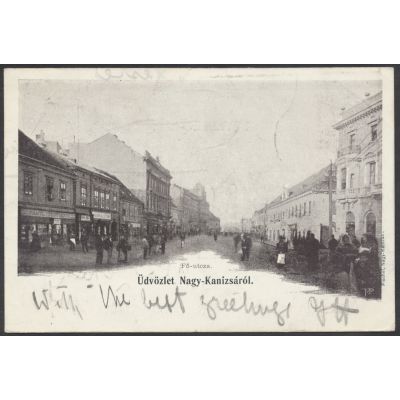 Fő-utcza.
Üdvözlet Nagy-Kanizsáról.
With the best greetings